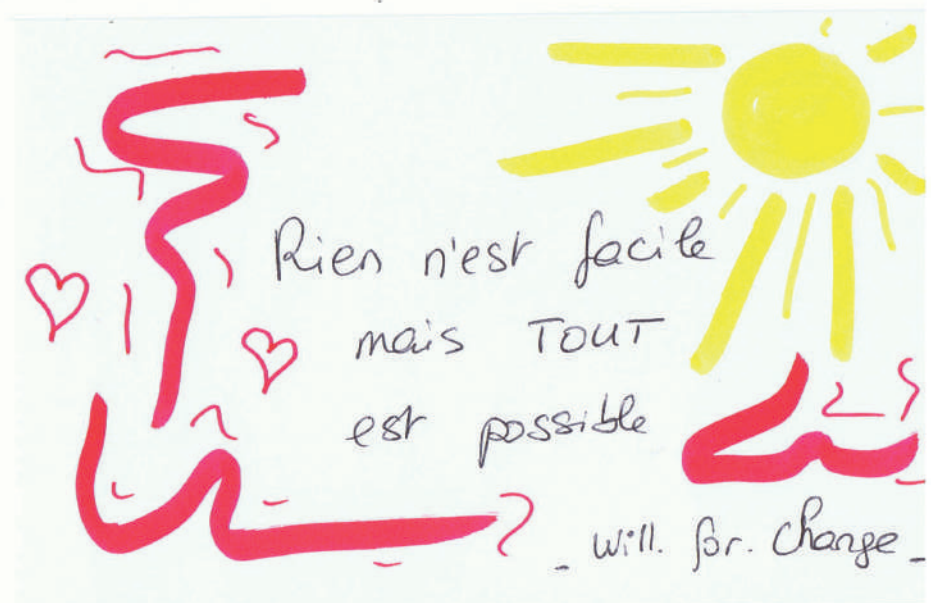 Rien n'est facile
mais TOUT
est possible
_ will. for. change _